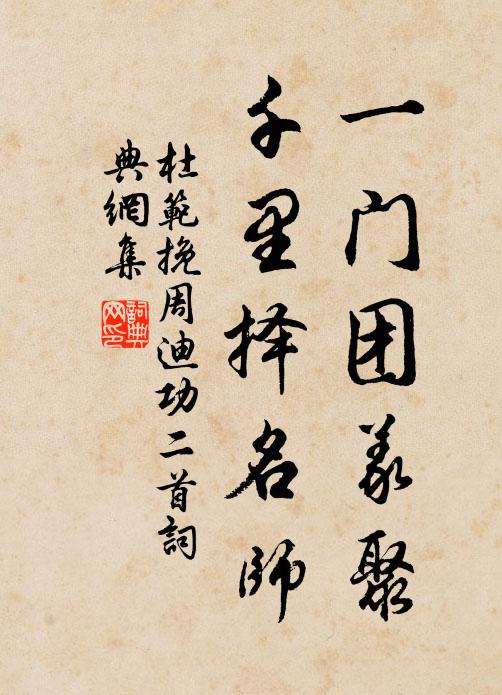 一门团义聚
千里择名师
杜範挽周迪功二首詞
典網集
詞典网印